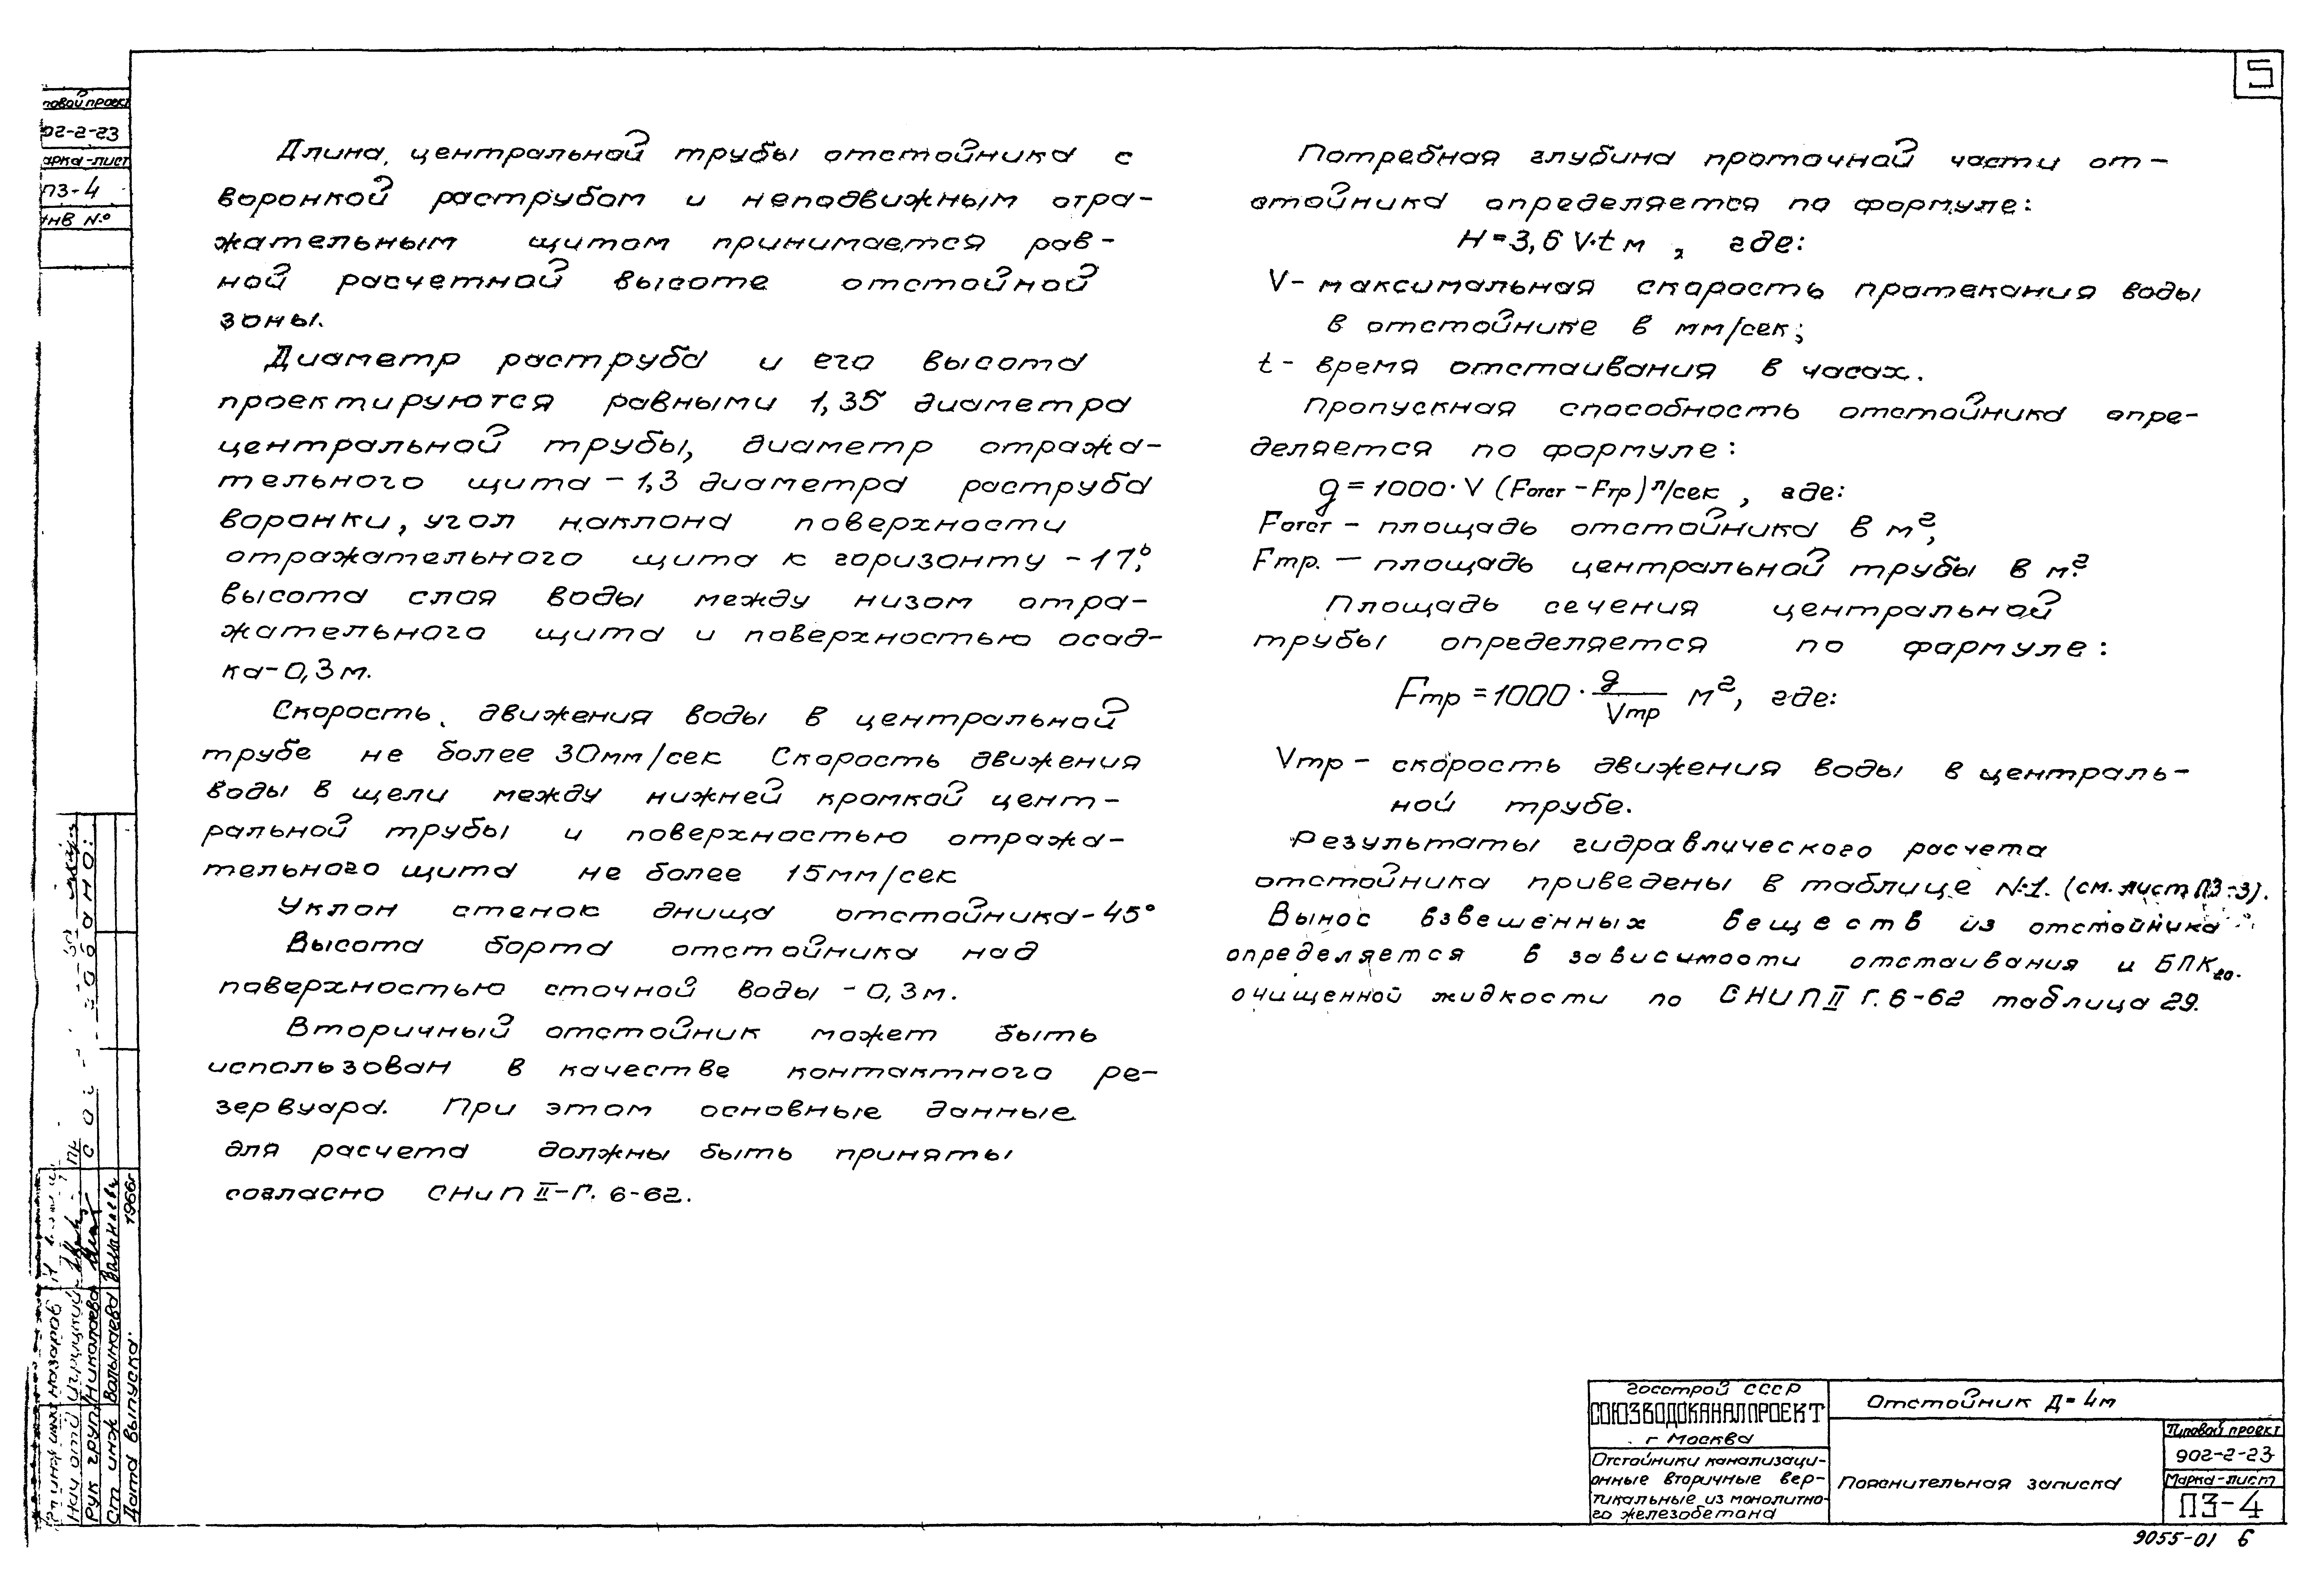 5
повой проект
902-2-23
арка-лист
ПЗ-4
инв №
Длина центральной трубы отстойника с
воронкой раструбом и неподвижным отра-
жательным щитом принимается рав-
ной расчетной высоте отстойной
зоны.
Диаметр раструба и его высота
проектируются равными 1,35 диаметра
центральной трубы, диаметр отража-
тельного щита - 1,3 диаметра раструба
воронки, угол наклона поверхности
отражательного щита к горизонту - 17°,
высота слоя воды между низом отра-
жательного щита и поверхностью осад-
ка - 0,3 м.
Скорость движения воды в центральной
трубе не более 30мм/сек Скорость движения
воды в щели между нижней кромкой цент-
ральной трубы и поверхностью отража-
тельного щита не более 15мм/сек
Уклон стенок днища отстойника - 45°
Высота борта отстойника над
поверхностью сточной воды - 0,3м.
Вторичный отстойник может быть
использован в качестве контактного ре-
зервуара. При этом основные данные
для расчета должны быть приняты
согласно СНиП II-Г. 6-62.
Потребная глубина проточной части от-
стойника определяется по формуле:
H = 3,6 V·t м , где:
V - максимальная скорость протекания воды
в отстойнике в мм/сек;
t - время отстаивания в часах.
Пропускная способность отстойника опре-
деляется по формуле:
q = 1000·V (Fотст - Fтр) л/сек , где:
Fотст - площадь отстойника в м²,
Fтр. - площадь центральной трубы в м².
Площадь сечения центральной
трубы определяется по формуле:
Fтр = 1000 · q/Vтр м², где:
Vтр - скорость движения воды в централь-
ной трубе.
Результаты гидравлического расчета
отстойника приведены в таблице №1. (см. лист ПЗ-3).
Вынос взвешенных веществ из отстойника
определяется в зависимости отстаивания и БПК20.
очищенной жидкости по СНиП II Г. 6-62 таблица 29.
Согласовано:
Назаров
Нач отд Игрицкий
Рук груп Николаева
Ст. инж Валынаева
Дата выпуска: 1966г
Госстрой СССР
СОЮЗВОДОКАНАЛПРОЕКТ
г Москва
Отстойники канализаци-
онные вторичные вер-
тикальные из монолитно-
го железобетона
Отстойник Д = 4м
Пояснительная записка
Типовой проект
902-2-23
Марка-лист
ПЗ-4
9055-01 6